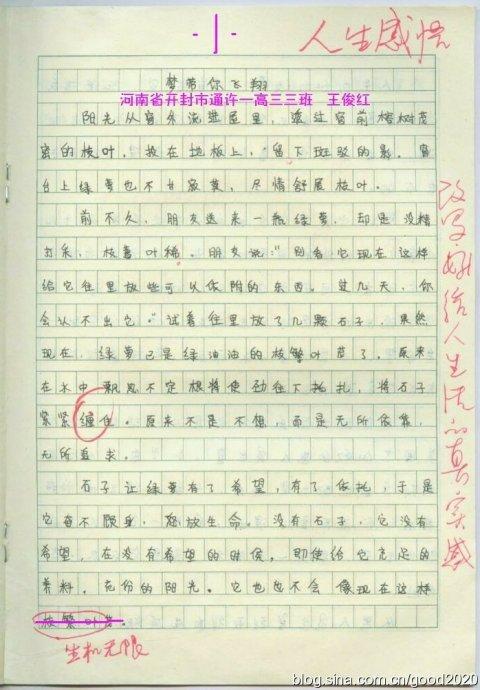 -1-
人生感悟
梦带你飞翔
河南省开封市通许一高三三班 王俊红
阳光从窗外流进屋里,透过窗前榕树茂
密的枝叶,投在地板上,留下斑驳的影。窗
台上绿萝也不甘寂寞,尽情舒展枝叶。
前不久,朋友送来一瓶绿萝,却是没精
打采,枝萎叶稀。朋友说:"别看它现在这样
给它往里放些可以依附的东西。过几天,你
会认不出它。"试着往里放了几颗石子,果然
现在,绿萝已是绿油油的枝繁叶茂了。原来
在水中飘忽不定根将使劲往下扎,将石子
紧紧缠住。原来不是不想,而是无所依靠,
无所追求。
石子让绿萝有了希望,有了依托,于是
它奋不顾身,怒放生命。没有石子,它没有
希望,在没有希望的时候,即使给它充足的
养料,充份的阳光。它也也不会像现在这样
枝繁叶茂。
生机无限
给人生活的真实感
blog.sina.com.cn/good2020